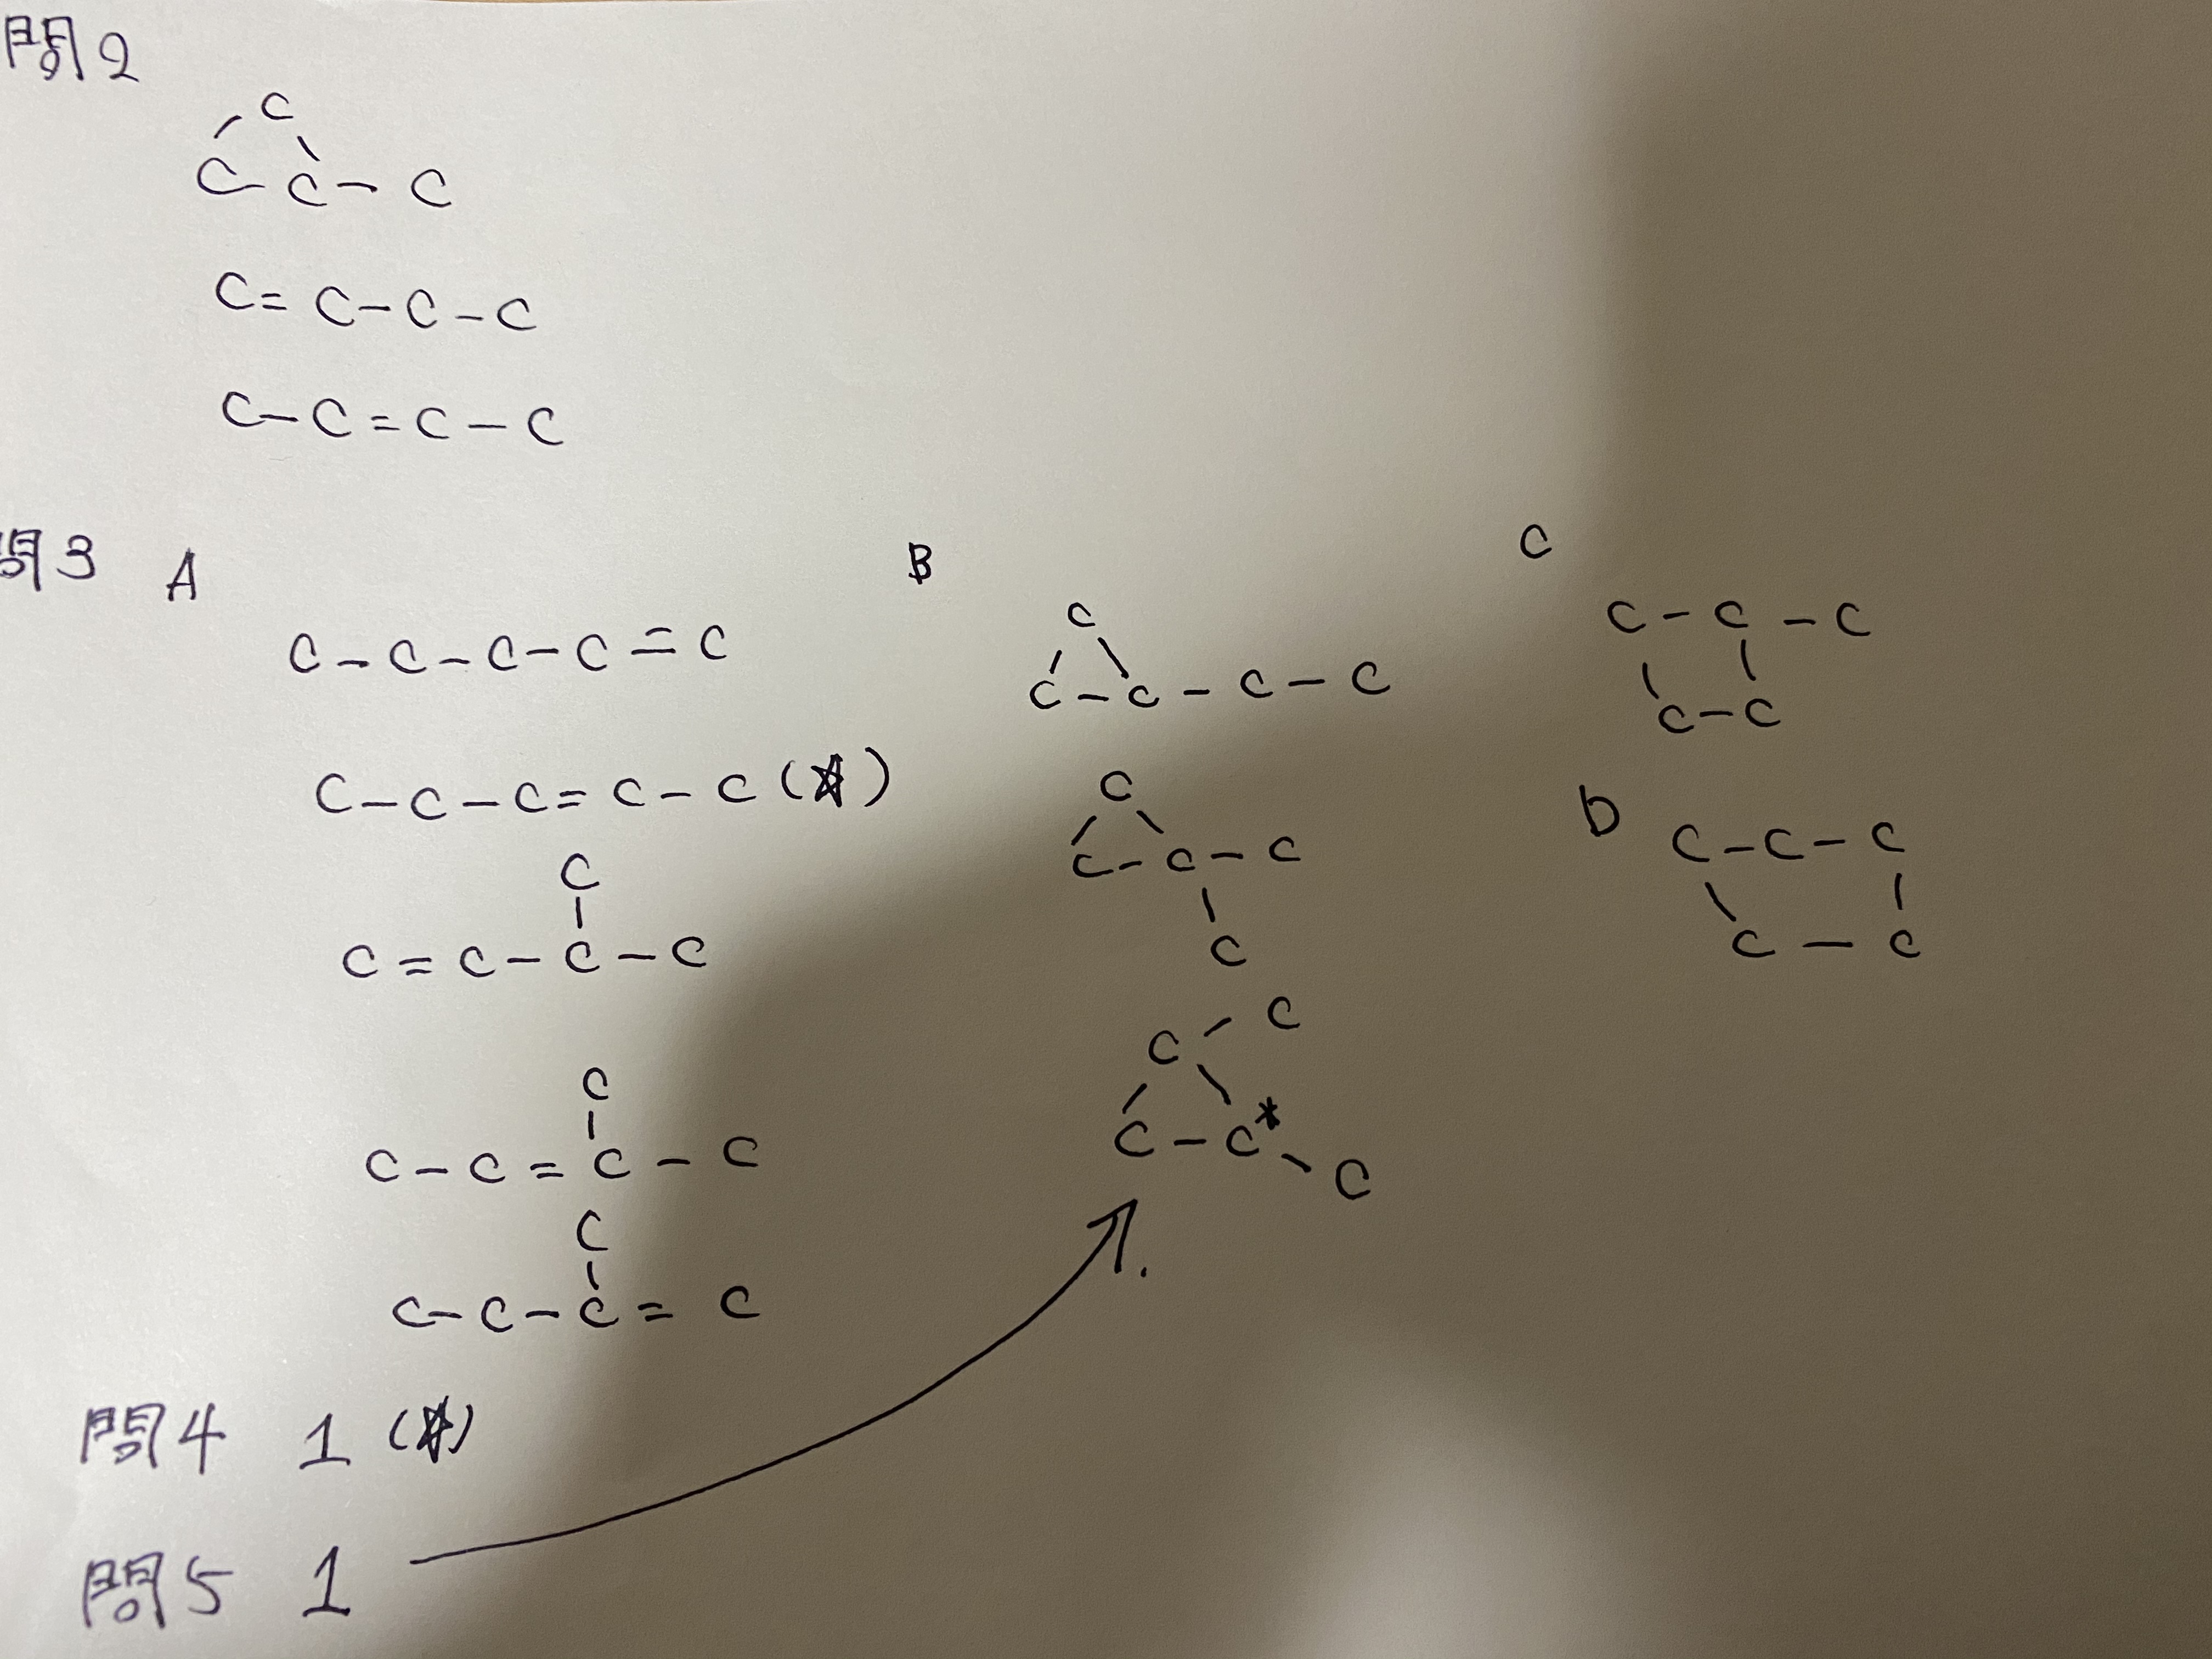 問2
C
C-C-C
C=C-C-C
C-C=C-C
問3 A
C-C-C-C=C
C-C-C=C-C(☆)
C
C=C-C-C
C
C-C=C-C
C
C-C-C=C
B
C
C-C-C-C
C
C-C-C
C
C-C
C-C*
C
C
C-C-C
C-C
D
C-C-C
C-C
問4 1 (☆)
問5 1